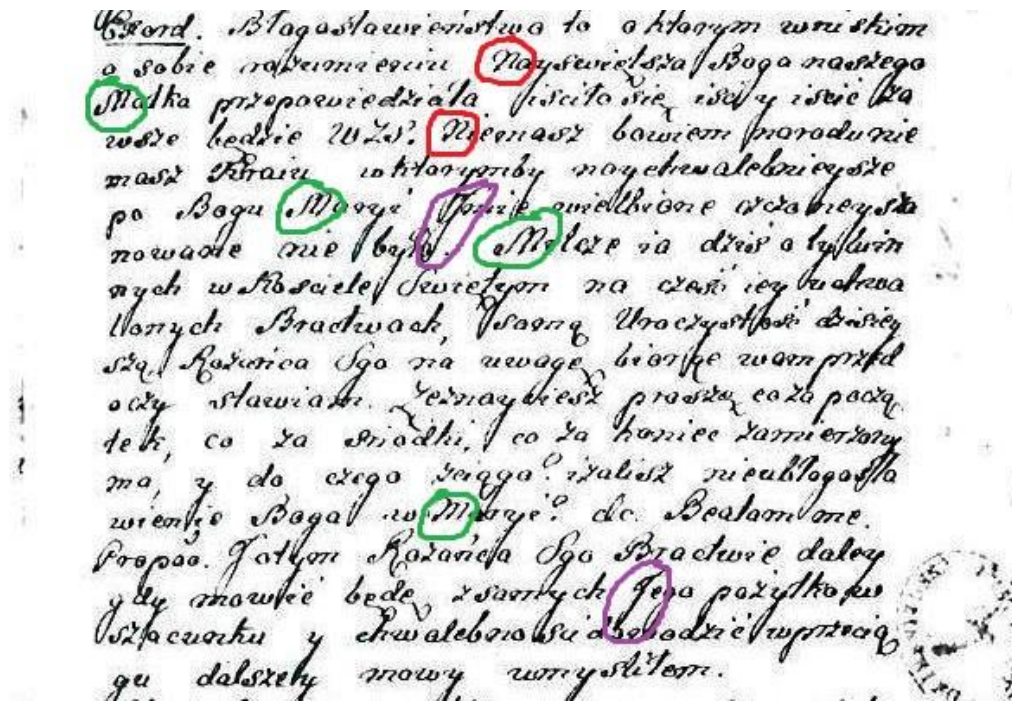 Exord. Błogosławieństwo to o którym wniskim
o sobie rozumieniu Nayswiętsza Boga naszego
Matka przepowiedziała iściło się, iści y iście za
wsze będzie WZS. Niemasz bowiem narodu nie
masz Kraiu wktórymby naychwalebnieysze
po Bogu Maryi Jmie wielbione czczone y sza
nowane nie było. Milczę ia dziś o tylu in
nych w Kościele Świętym na cześć iey uchwa
lonych Bractwach, samą Uroczystość dzisiey
szą Rożańca Sgo na uwagę biorąc wam przed
oczy stawiam. proszę co za począ
tek, co za srzodki, co za koniec zamierzony
ma, y do czego zciąga? izalisz nieubłogosła
wienie Boga w Maryi? dc. Beatam me.
Propoo. Jotym Rożańca Sgo Bractwie daley
gdy mowić będę z samych Jego pożytkow
szacunku y chwalebności dowodzić wprzecią
gu dalszey mowy umysliłem.